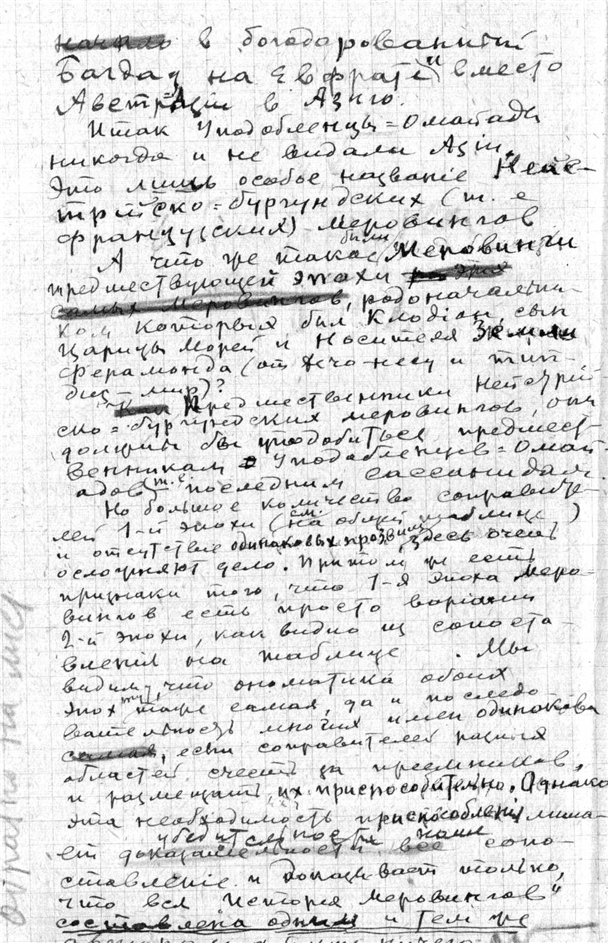 в богодарованный
Багдад на Евфрате" вместо
Австразiи в Азию.
Итак Уподобленцы=Омайады
никогда и не видали Азiи.
Это лишь особое названiе Нейс-
трiйско=бургундских (т. е
французских) Меровингов
А что же такое были Меровинги
предшествующей эпохи
самых Меровингов, родоначальни-
ком которых был Клодiон, сын
Царицы Морей и Носителя Земли
Ферамонда (от
мир)?
Предшественники Нейстрий-
ско=бургундских меровингов, они
должны бы уподобиться предшест-
венникам Уподобленцев=Омай-
адов, т. е. последним сассанидам.
Но большое количество соправите-
лей 1-й эпохи (см. на общей таблице)
и отсутствие одинаковых прозвищ здесь очень
осложняют дело. Притом же есть
признаки того, что 1-я эпоха Меро-
вингов есть просто варiант
2-й эпохи, как видно из сопоста-
вленiя на таблице . Мы
видим, что ономатика обоих
эпох та же самая, да и последо
вательность многих имен одинакова
самая, если соправителей разных
областей счесть за преемников,
и размещать их приспособительно. Однако
эта необходимость приспособленiя лиша-
ет убедительности наше сопо-
ставленiе и доказывает только,
что вся "История Меровингов"
составлена одним и тем же